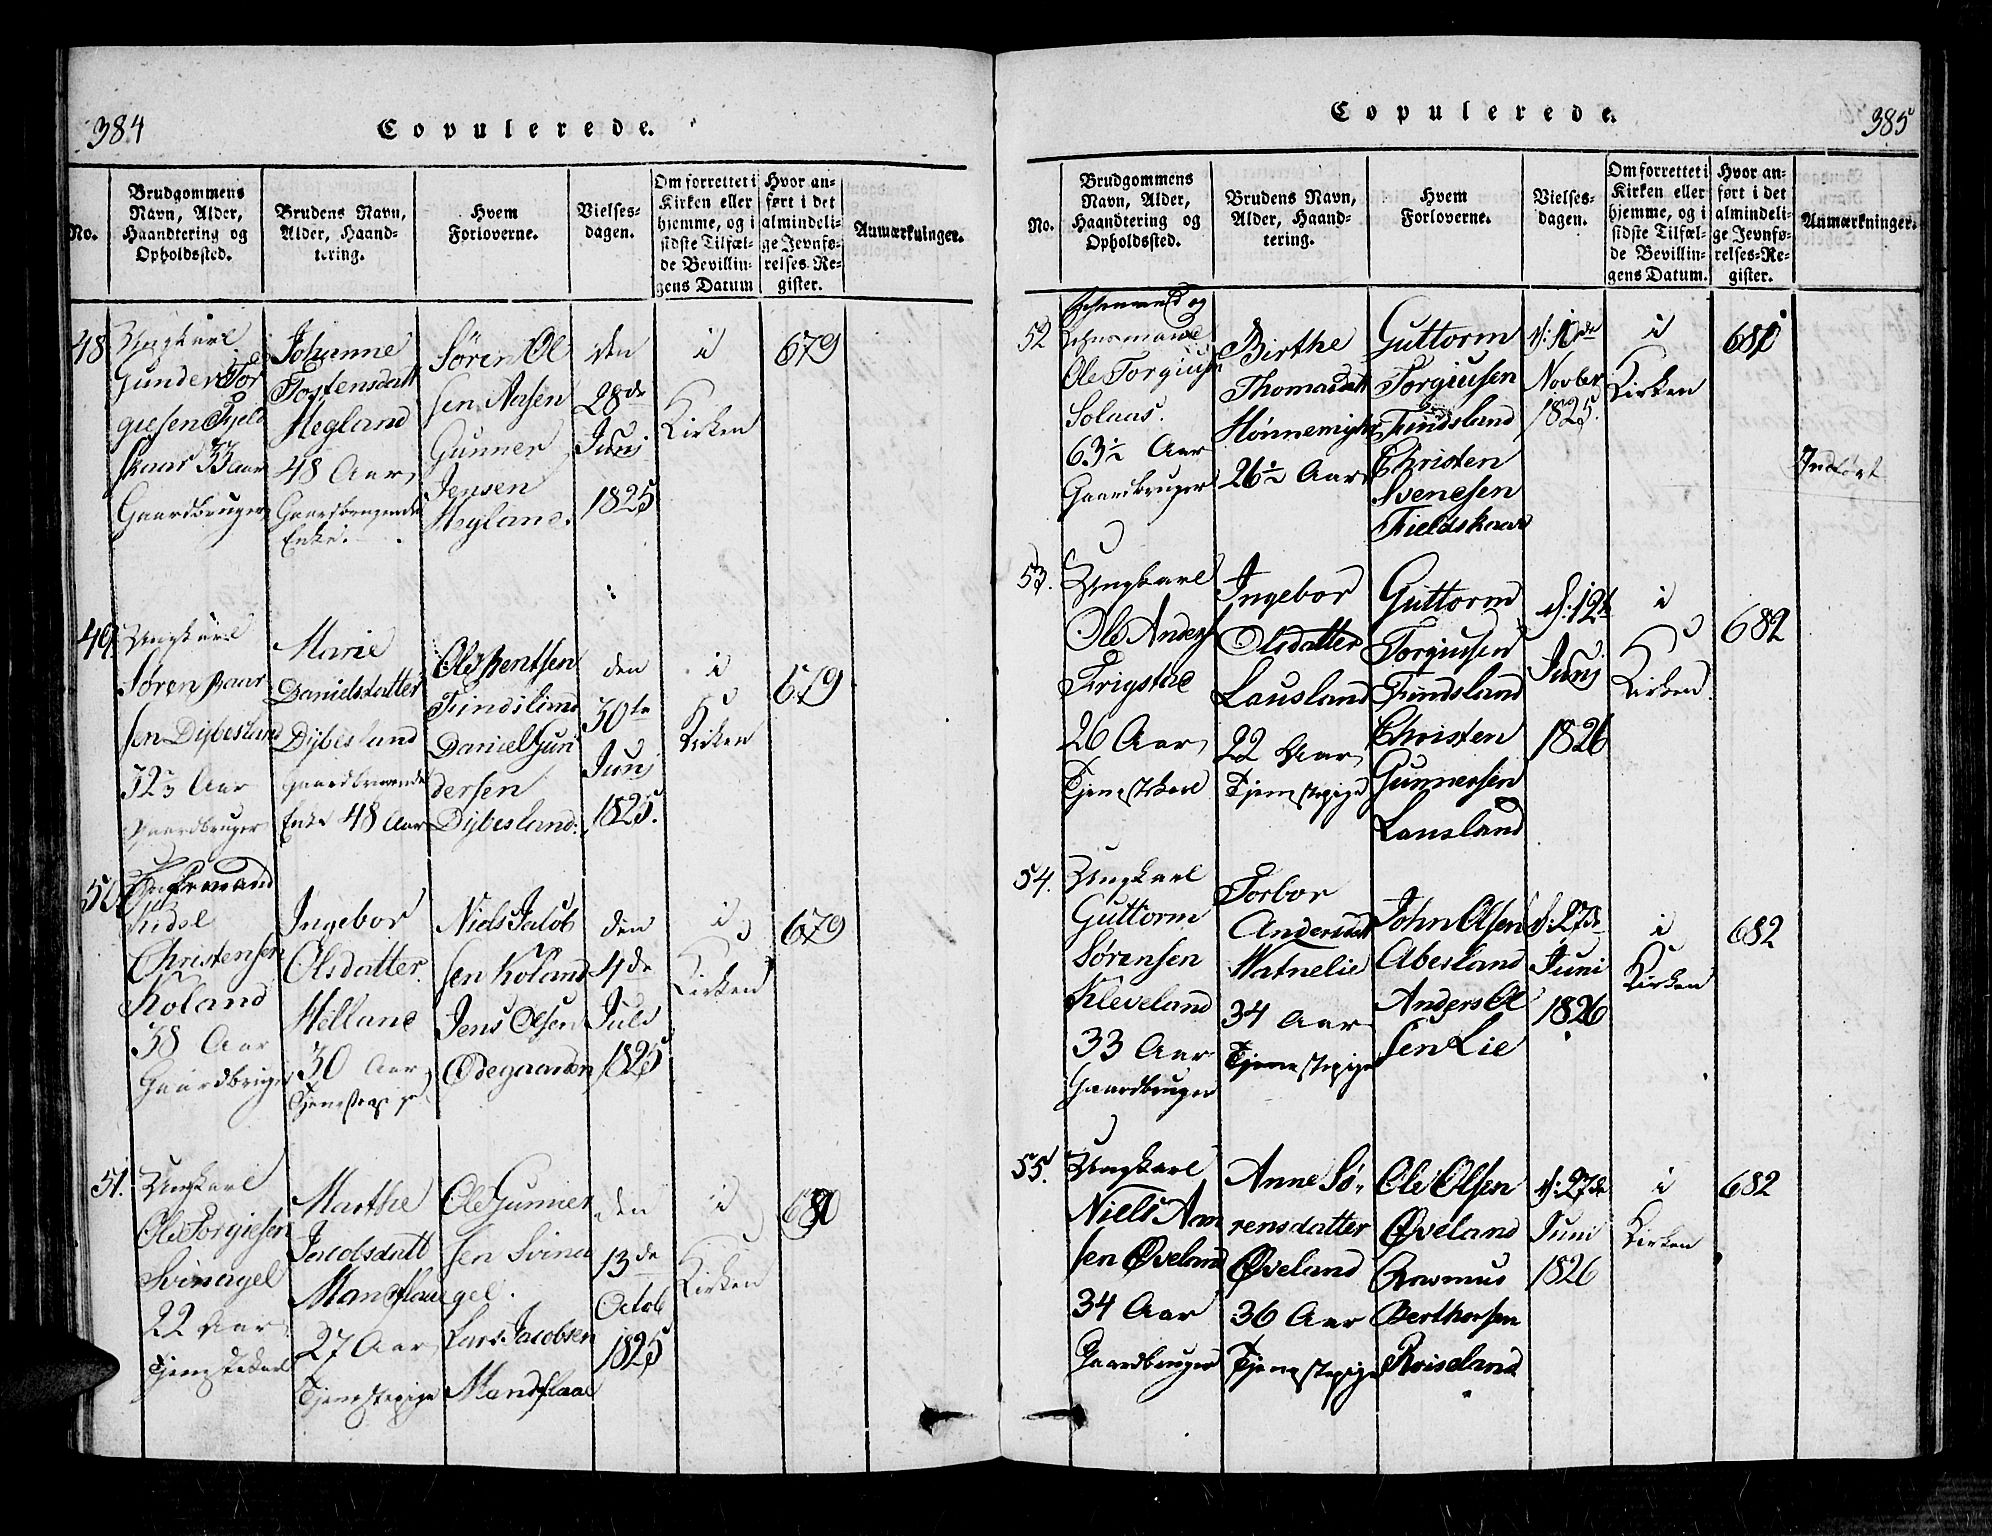 384
Copulerede.
No.
Brudgommens
Navn, Alder,
Haandtering og
Opholdssted.
Brudens Navn,
Alder, Haand-
tering.
Hvem
Forloverne.
Vielses-
dagen.
Om forrettet i
Kirken eller
hjemme, og i
sidste Tilfæl-
de Bevillin-
gens Datum
Hvor an-
ført i det
almindeli-
ge Jevnfø-
relses-Re-
gister.
Anmærkninger.
48
Ungkarl
Gunder Tor
giesen Fjeld
skaar 33 aar
Gaardbruger
Johanne
Tostensdatt
Hegland
48 Aar
Gaardbrugende
Enke.
Søren Ol
sen Aasen
Gunner
Jensen
Hegland.
den
28de
Junj
1825
i
Kirken
679
49
Ungkarl
Søren Baar
sen Dybesland
32 Aar
Gaardbruger
Marie
Danielsdatter
Dybesland
Gaardbrugende
Enke 48 Aar
Ole Bentsen
Findsland
Daniel Gun
dersen
Dybesland.
den
30te
Junj
1825.
i
Kirken
679
50
Enkemand
Kidel
Christensen
Koland
38 Aar
Gaardbruger
Ingebor
Olsdatter
Helland
30 Aar
Tjenestepige
Niels Jacob
sen Koland
Jens Olsen
Ødegaarden
den
4de
Juli
1825
i
Kirken
679
51.
Ungkarl
Ole Torgiesen
Svinagel
22 Aar
Tjenestekarl
Marthe
Jacobsdatt
Mandflaae
27 Aar
Tjenestepige
Ole Gunner
sen Svina
gel.
Lars Jacobsen
Mandflaae
den
13de
Octob
1825
i
Kirken
680
385
Copulerede.
No.
Brudgommens
Navn, Alder,
Haandtering og
Opholdssted.
Brudens Navn,
Alder, Haand-
tering.
Hvem
Forloverne.
Vielses-
dagen.
Om forrettet i
Kirken eller
hjemme, og i
sidste Tilfæl-
de Bevillin-
gens Datum.
Hvor an-
ført i det
almindeli-
ge Jevnfø-
relses-Re-
gister.
Anmærkninger.
52
og
Ole Torgiusen
Solaas.
63½ Aar
Gaardbruger
Birthe
Thomasdatt
Hønnemyhr
26½ Aar
Guttorm
Torgiusen
Findsland
Christen
Svenesen
Fieldskaar
d: 10de
Novber
1825.
i
Kirken
681
Indført
53.
Ungkarl
Ole Anders
Frigstad
26 Aar
Tjenestekarl
Ingebor
Olsdatter
Lausland
22 Aar
Tjenestepige
Guttorm
Torgiusen
Findsland
Christen
Gunnersen
Lausland
d: 12t
Junj
1826
i
Kirken.
682
54.
Ungkarl
Guttorm
Sørensen
Kleveland
33 Aar
Gaardbruger
Torbor
Andersdatt
Watnelie
34 Aar
Tjenestepige
John Olsen
Abesland
Anders Ol
sen Lie
d: 27de
Juni
1826
i
Kirken
682
55.
Ungkarl
Niels Aan
sen Øveland
34 Aar
Gaardbruger
Anne Sø-
rensdatter
Øveland
36 Aar
Tjenestepige
Ole Olsen
Øveland
Rasmus
Berthorsen
Roiseland
d: 27de
Juni
1826
i
Kirken
682